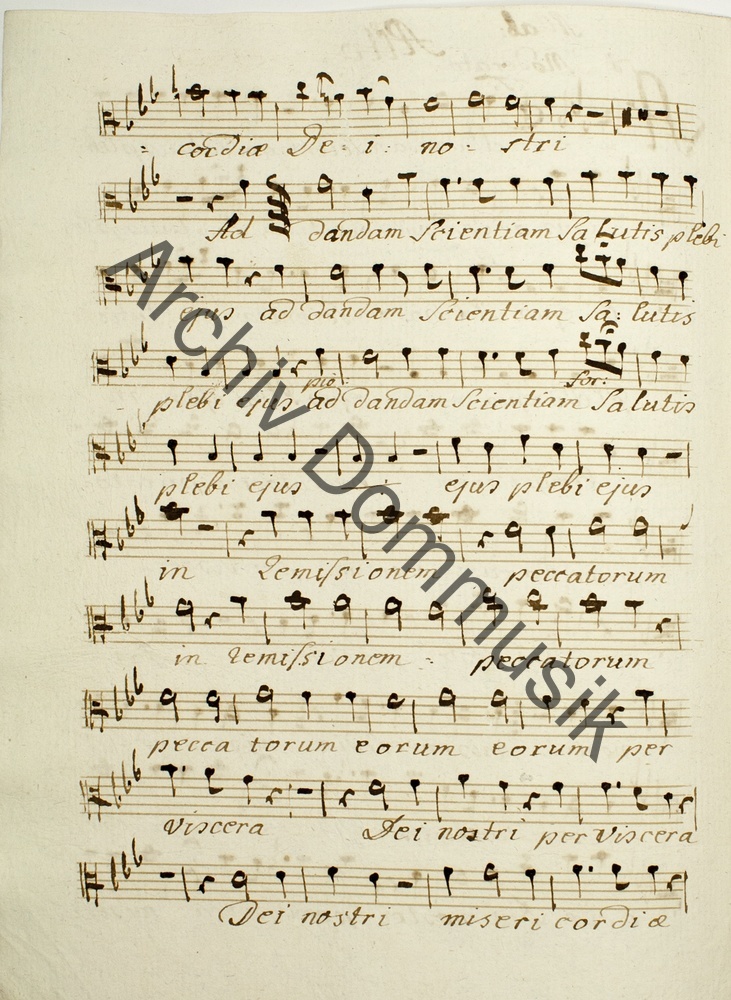 - cordiæ De - i - no - stri
Ad dandam Scientiam Salutis plebi
ejus ad dandam Scientiam Sa: lutis
pio: for:
plebi ejus ad dandam Scientiam Salutis
plebi ejus ejus plebi ejus
in remissionem peccatorum
in remissionem - peccatorum
pecca torum eorum eorum per
viscera Dei nostri per viscera
Dei nostri miseri cordiæ
Archiv Dommusik